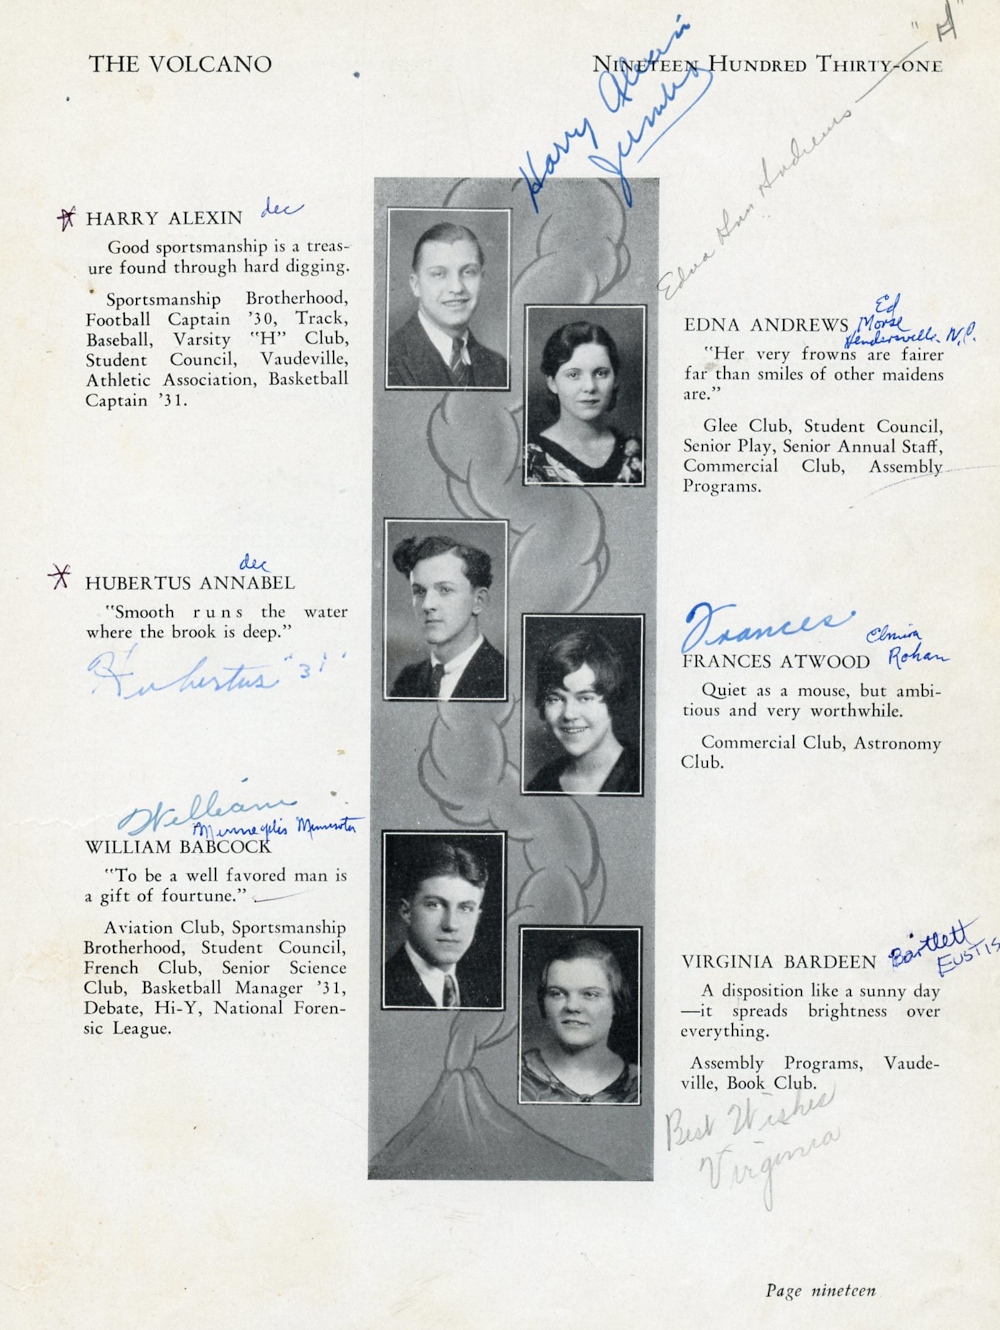 THE VOLCANO
NINETEEN HUNDRED THIRTY-ONE
"H"
Harry Alexin
Jumbo
Edna Ann Andrews
HARRY ALEXIN dec
Good sportsmanship is a treas-
ure found through hard digging.
Sportsmanship Brotherhood,
Football Captain '30, Track,
Baseball, Varsity "H" Club,
Student Council, Vaudeville,
Athletic Association, Basketball
Captain '31.
Ed
EDNA ANDREWS Morse
Hendersonville N.C.
"Her very frowns are fairer
far than smiles of other maidens
are."
Glee Club, Student Council,
Senior Play, Senior Annual Staff,
Commercial Club, Assembly
Programs.
dec
HUBERTUS ANNABEL
"Smooth runs the water
where the brook is deep."
Hubertus "31"
Frances
Elmira
FRANCES ATWOOD Rohan
Quiet as a mouse, but ambi-
tious and very worthwhile.
Commercial Club, Astronomy
Club.
William
Minneapolis Minnesota
WILLIAM BABCOCK
"To be a well favored man is
a gift of fourtune."
Aviation Club, Sportsmanship
Brotherhood, Student Council,
French Club, Senior Science
Club, Basketball Manager '31,
Debate, Hi-Y, National Foren-
sic League.
VIRGINIA BARDEEN Bartlett
EUSTIS
A disposition like a sunny day
—it spreads brightness over
everything.
Assembly Programs, Vaude-
ville, Book Club.
Best Wishes
Virginia
Page nineteen